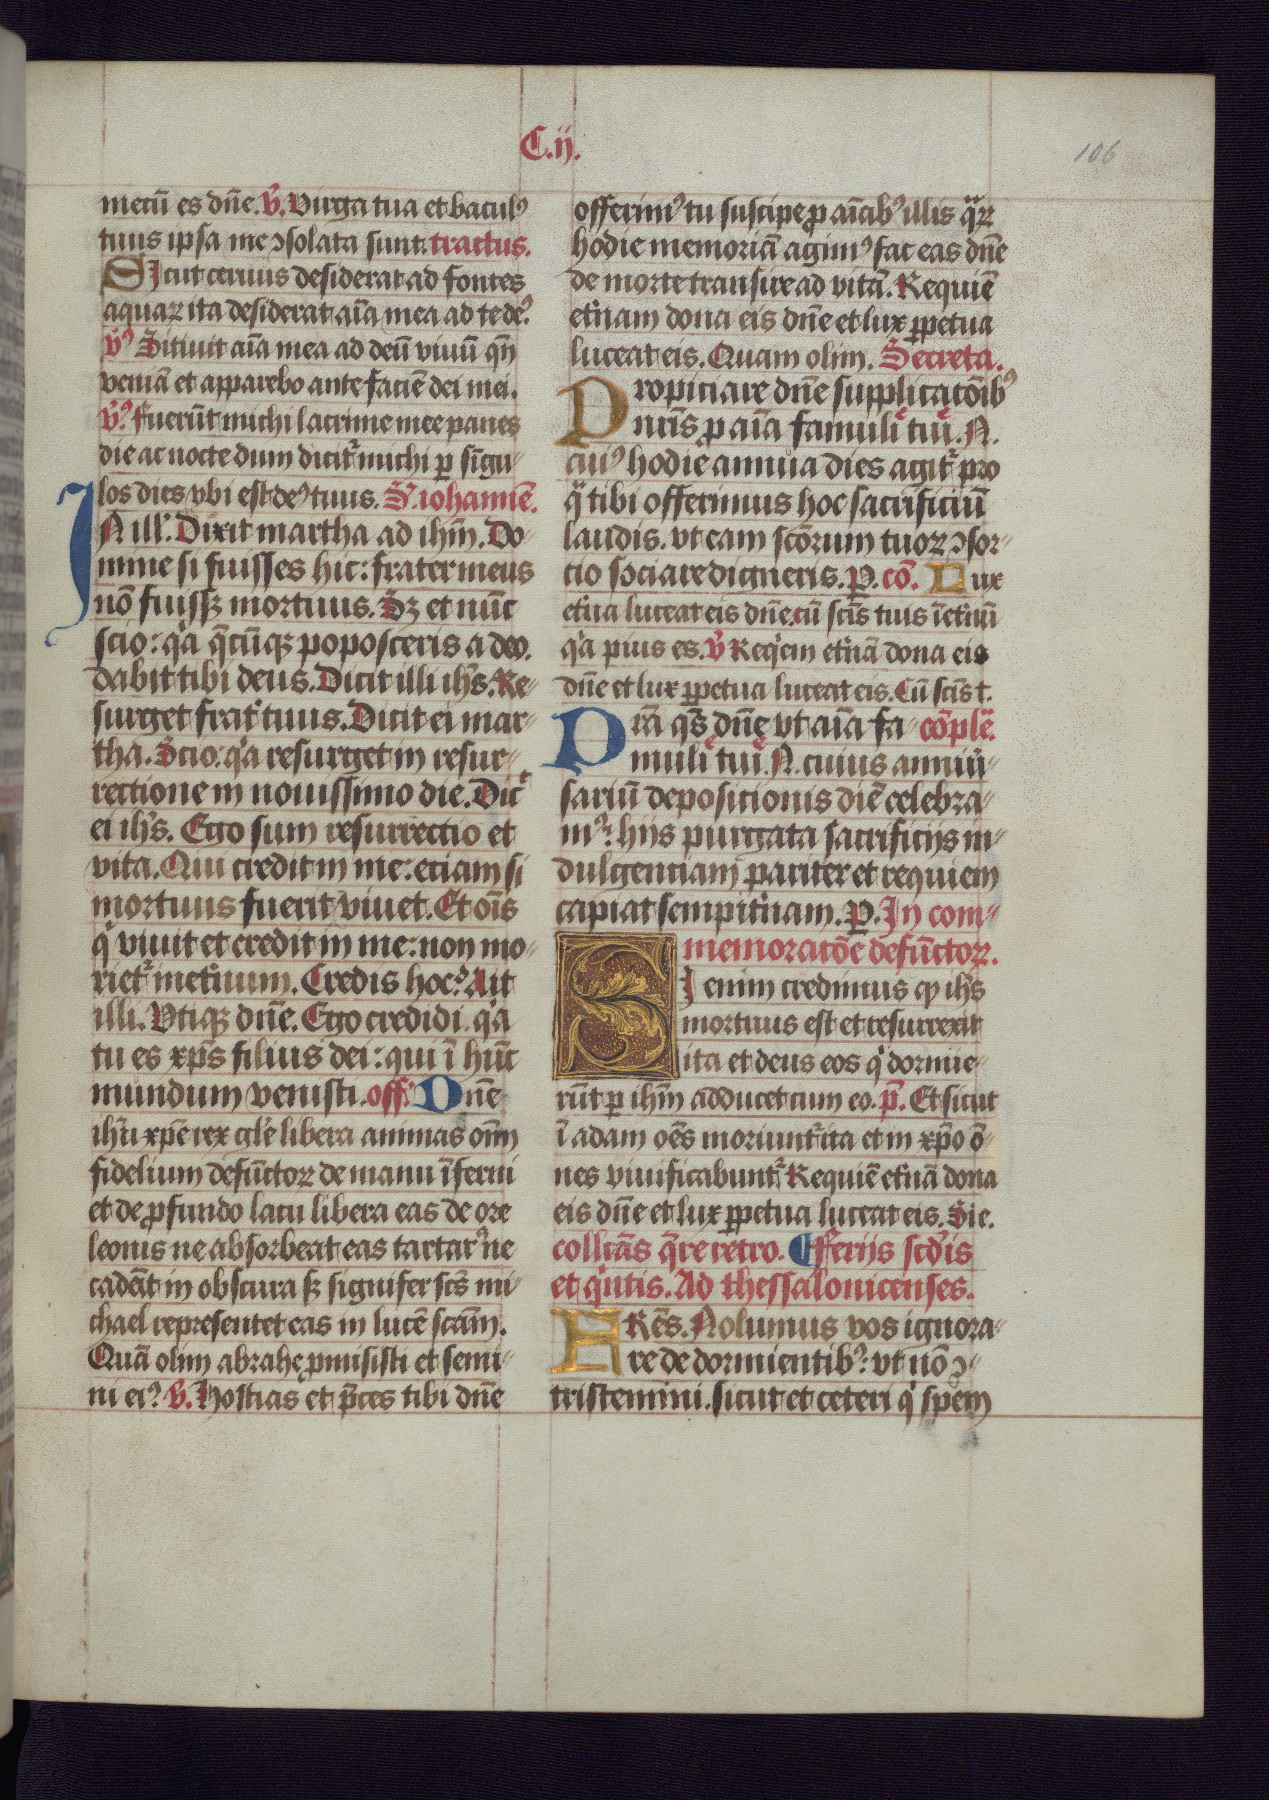 C.ij.
106
mecū es dn̄e. V̄. Virga tua et baculꝰ
tuus ipsa me ↄsolata sunt. tractus.
SIcut ceruus desiderat ad fontes
aquaꝝ ita desiderat aīa mea ad te deꝰ.
Vꝰ Sitiuit aīa mea ad deū viuū qn̄
veniā et apparebo ante faciē dei mei.
V̄ꝰ. fuerūt michi lacrime mee panes
die ac nocte dum dicit᷑ michi ꝑ singu-
los dies vbi est deꝰ tuus. S. iohannē.
IN illꝰ. Dixit martha ad ihm̄. Do-
mine si fuisses hic: frater meus
nō fuissꝫ mortuus. Sꝫ et nūc
scio: qͥa q̄cūqꝫ poposceris a deo.
dabit tibi deus. Dicit illi ihs̄. Re-
surget frat᷑ tuus. Dicit ei mar-
tha. Scio. qͥa resurget in resur-
rectione in nouissimo die. Dic᷑
ei ihs̄. Ego sum resurrectio et
vita. Qui credit in me: eciam si
mortuus fuerit viuet. Et oīs
qͥ viuit et credit in me: non mo-
riet᷑ inet᷑num. Credis hoc? Ait
illi. Vtiqꝫ dn̄e. Ego credidi. qͥa
tu es xp̄s filius dei: qui ī hūc
mundum venisti. off. Dn̄e
ihū xp̄e rex gl̄e libera animas om̄
fidelium defūctoꝝ de manu īferni
et de ꝓfundo lacu libera eas de ore
leonis ne absorbeat eas tartarꝰ ne
cadāt in obscura sꝫ signifer scs̄ mi-
chael representet eas in lucē scām.
Quā olim abrahe ꝓmisisti et semi-
ni eiꝰ. V̄. Hostias et p̄ces tibi dn̄e
offerimꝰ tu suscipe ꝓ aīabꝰ illis qͣꝝ
hodie memoriā agimꝰ fac eas dn̄e
de morte transire ad vitā. Requiē
et᷑nam dona eis dn̄e et lux ꝑpetua
luceat eis. Quam olim. Secreta.
Propiciare dn̄e supplicacōibꝰ
nr̄is ꝓ aīa famuli tui. N.
cuiꝰ hodie annua dies agit᷑ pro
qͣ tibi offerimus hoc sacrificiū
laudis. vt eam scōrum tuoꝝ ↄsor-
cio sociare digneris. P. cō. Lux
et᷑na luceat eis dn̄e. cū scīs tuis īet᷑nū
qͥa pius es. V̄ Reqͥem et᷑nā dona eis
dn̄e et lux ꝑpetua luceat eis. Cū scīs t.
Pr̄a qs̄ dn̄e vt aīa fa- cōple.
muli tui. N. cuius anniū᷑-
sariū deposicionis diē celebra-
mꝰ: hijs purgata sacrificijs in-
dulgenciam pariter et requiem
capiat sempit᷑nam. P. In com-
memoracōe defūctoꝝ.
SI enim credimus ꝙ ihs̄
mortuus est et resurrexit
ita et deus eos qͥ dormie-
rūt ꝑ ihm̄ adducet cum eo. p̄. Et sicut
ī adam oēs moriunt᷑ ita et in xp̄o ō-
nes viuificabunt᷑ Requiē et᷑nā dona
eis dn̄e et lux ꝑpetua luceat eis. Sic.
collcās q̄re retro. ¶fferijs scd̄is
et qͥntis. Ad thessalonicenses.
FRēs. Nolumus vos ignora-
re de dormientibꝰ: vt nō ↄ-
tristemini. sicut et ceteri qͥ spem